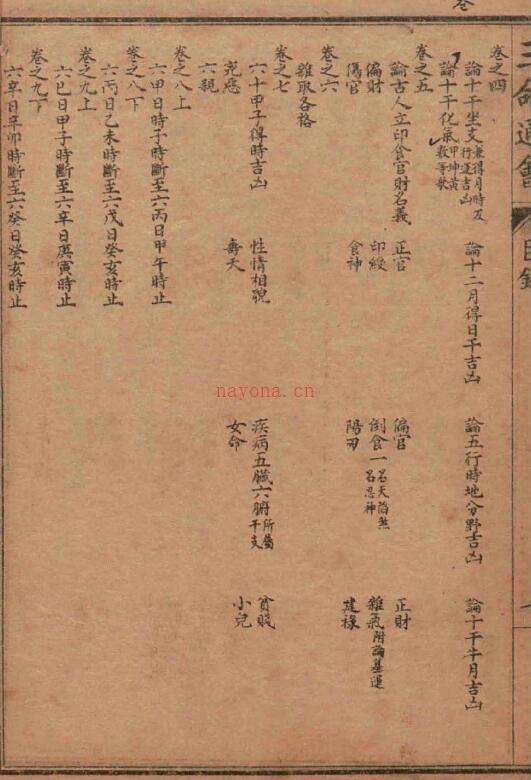 三命通會 目錄
卷之四
論十干坐支兼得月時及行運吉凶 論十二月得日干吉凶 論五行時地分野吉凶 論十干生月吉凶
論十干化氣甲坤黃數等歌
卷之五
論古人立印食官財名義 正官 偏官 正財
偏財 印綬 倒食一名天陷煞一名忌神 雜氣附論墓運
傷官 食神 陽刃 建祿
卷之六
雜取各格
卷之七
六十甲子得時吉凶 性情相貌 疾病五臟六腑所屬干支 貧賤
兇惡 壽夭 女命 小兒
六親
卷之八上
六甲日時子時斷至六丙日甲午時止
卷之八下
六丙日乙未時斷至六戊日癸亥時止
卷之九上
六巳日甲子時斷至六辛日庚寅時止
卷之九下
六辛日辛卯時斷至六癸日癸亥時止
nayona.cn